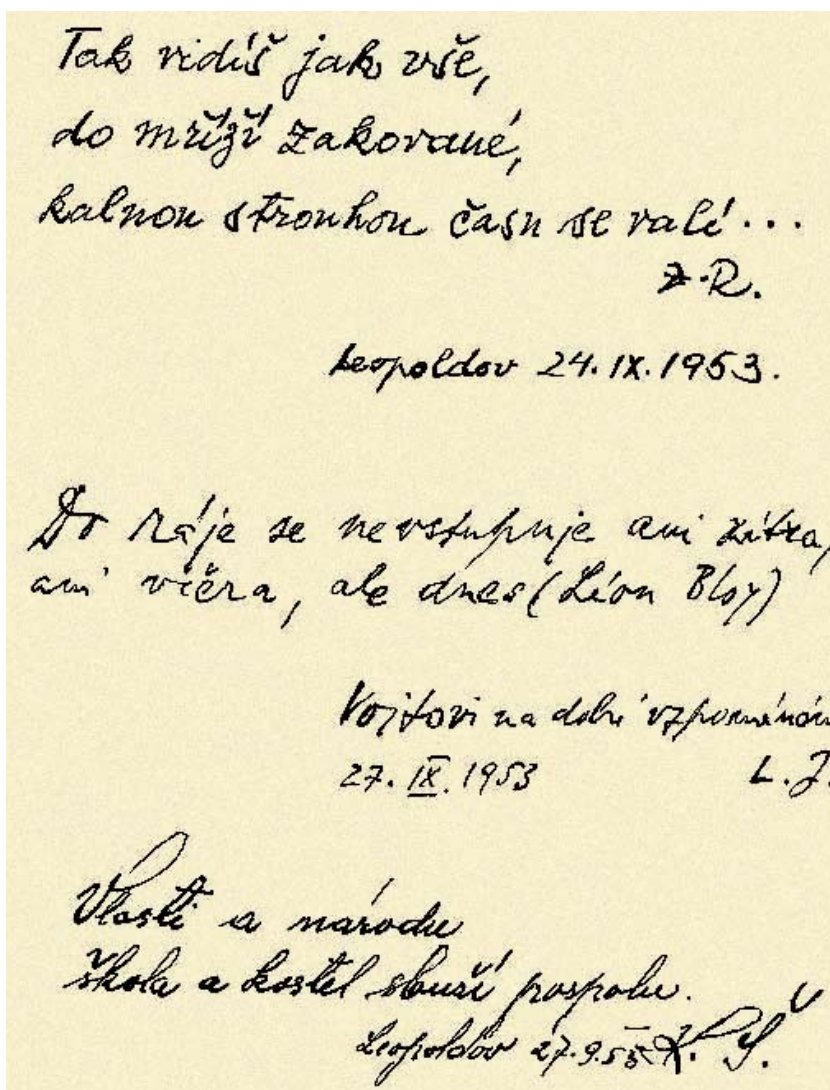 Tak vidíš jak vše,
do mříží zakované,
kalnou strouhou času se valí...
Z.R.
Leopoldov 24.IX.1953.
Do ráje se nevstupuje ani zítra,
ani včera, ale dnes (Léon Bloy)
Vojtovi na dobré vzpomínán
27.IX.1953 L.J.
Vlasti a národu
škola a kostel slouží pospolu.
Leopoldov 27.9.53 K. Š.